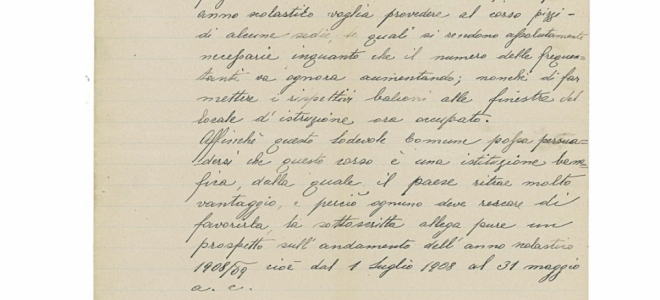 anno scolastico voglia provvedere al corso pizzi-
di alcune sedie, le quali si rendono assolutamente
necessarie inquanto che il numero delle frequen-
tanti va ognora aumentando; nonchè di far
mettere i rispettivi balconi alle finestre del
locale d'istruzione ora occupato.
Affinchè questo lodevole Comune possa persua-
dersi che questo corso è una istituzione bene-
fica, dalla quale il paese ritrae molto
vantaggio, e perciò ognuno deve cercare di
favorirla, la sottoscritta allega pure un
prospetto sull'andamento dell'anno scolastico
1908/09 cioè dal 1 Luglio 1908 al 31 maggio
a. c.